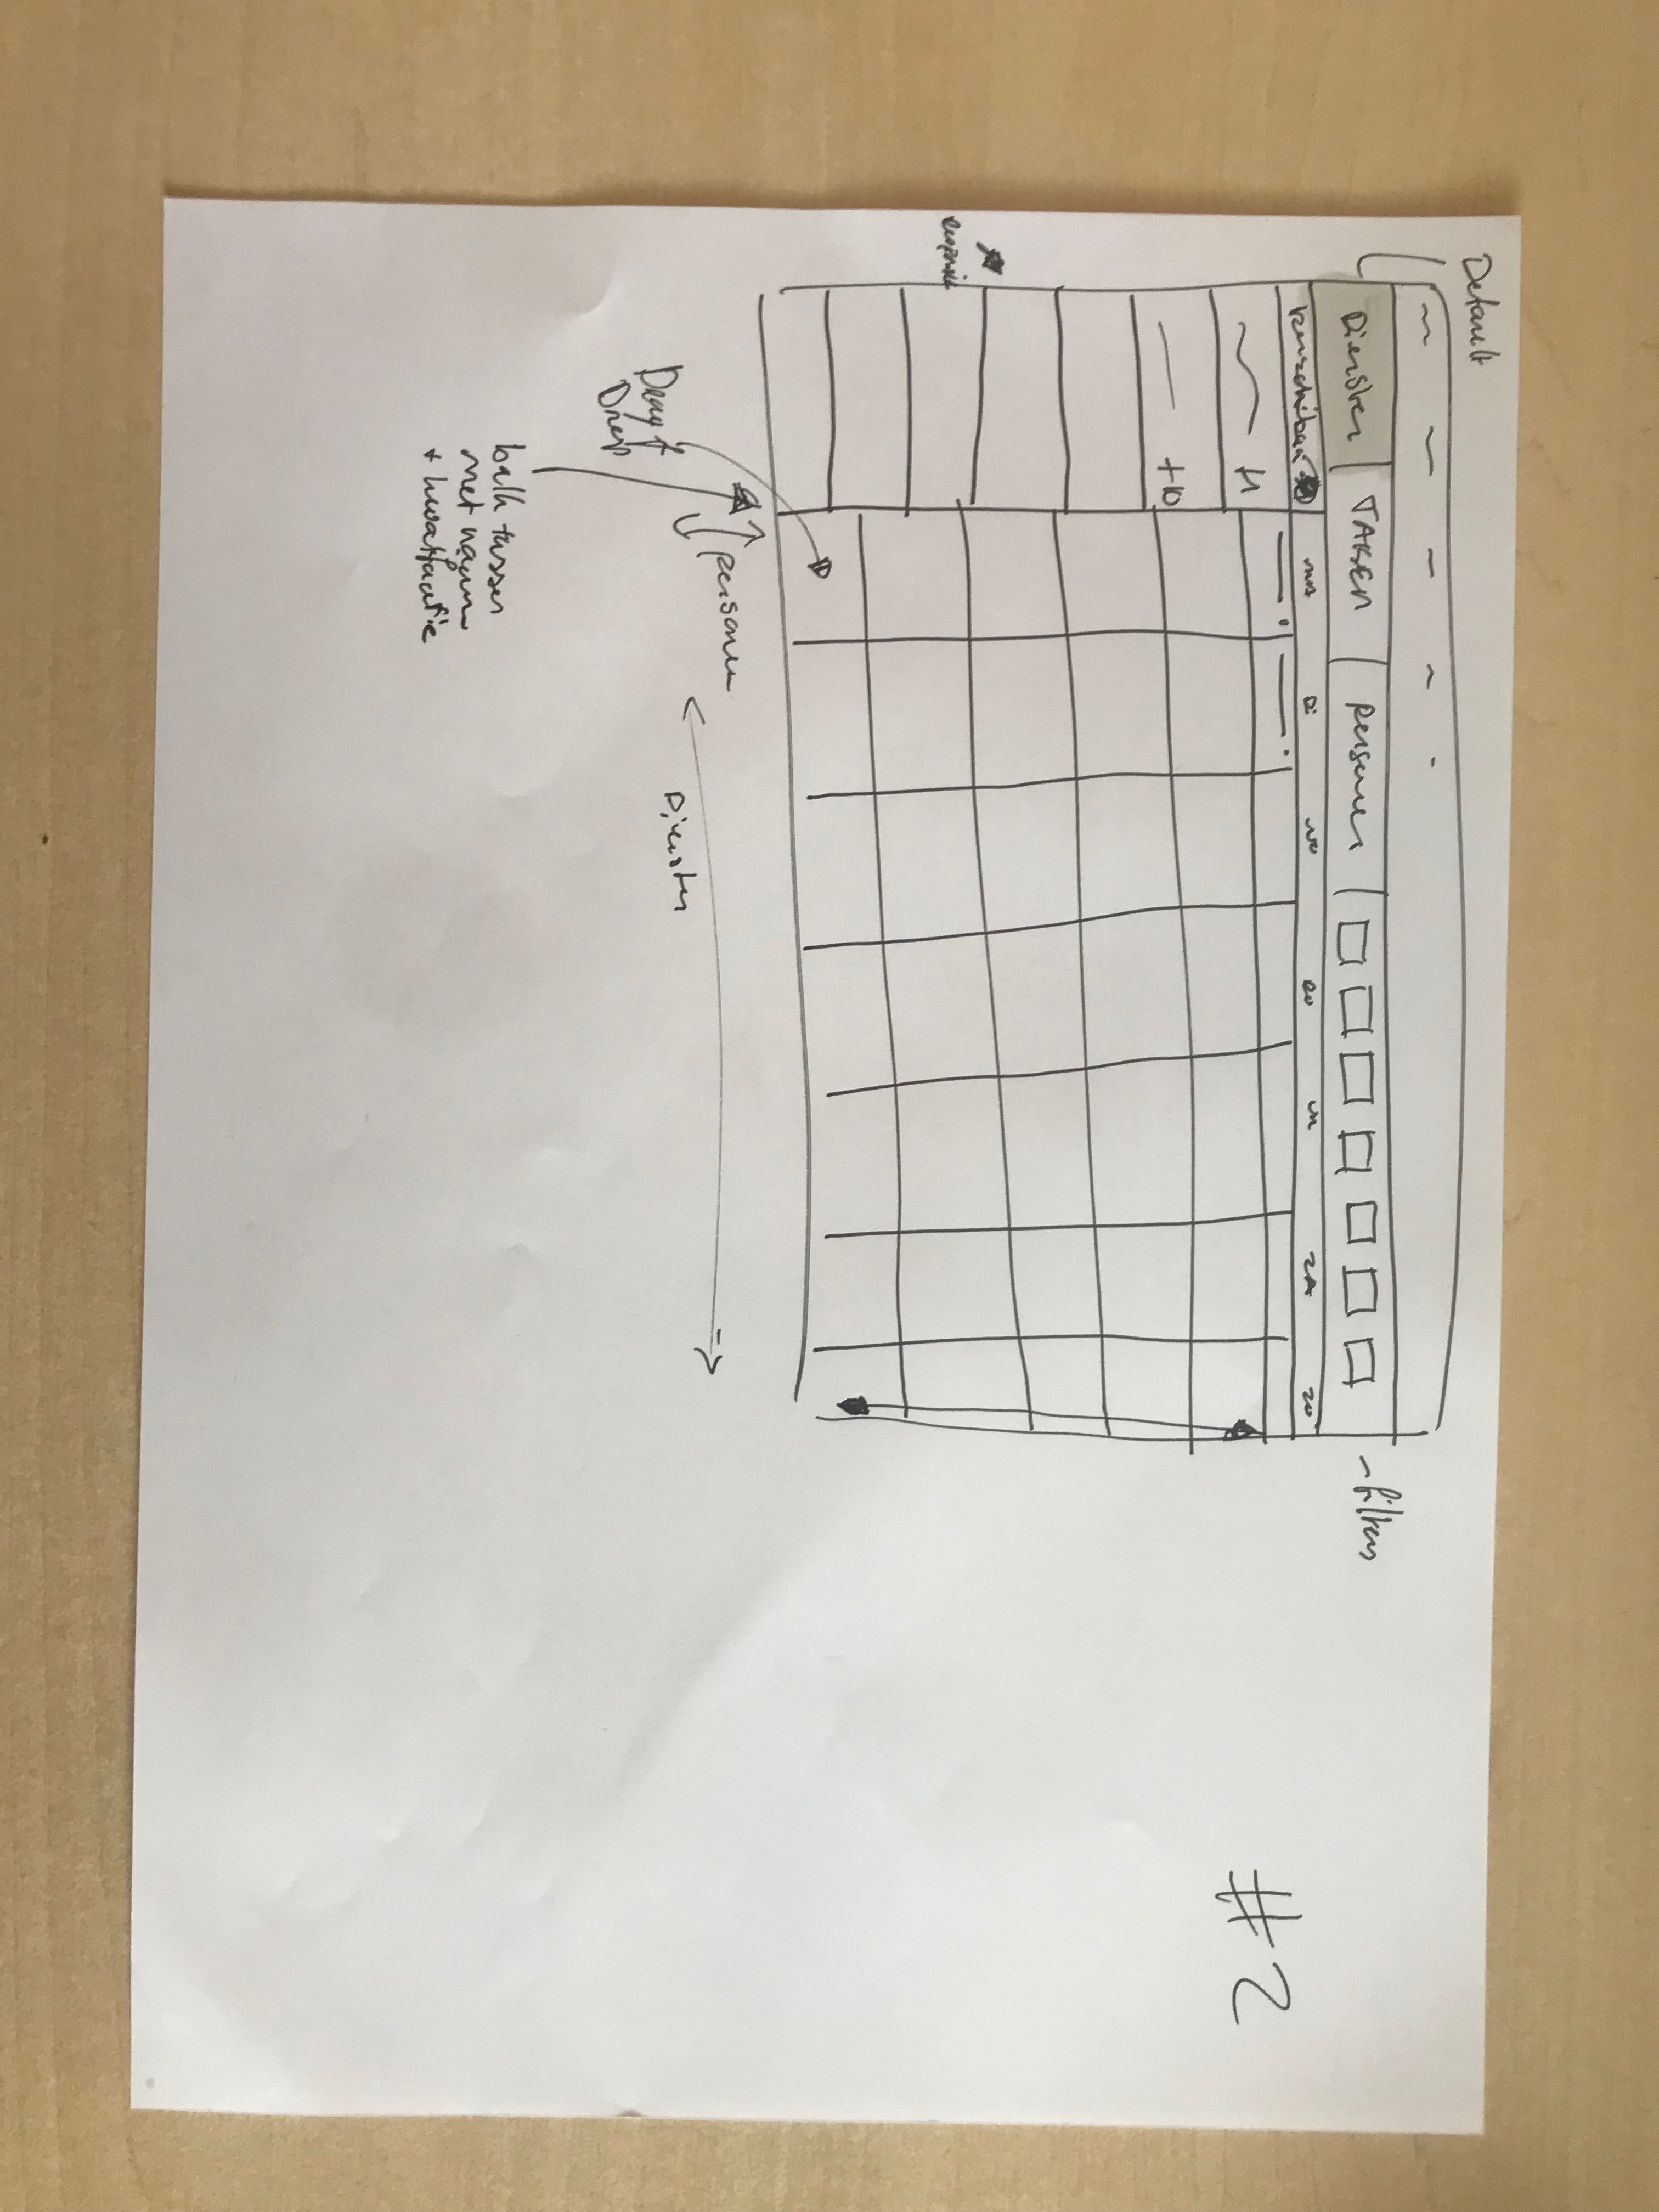 Default
Diensten TAKEN Personen
- filters
MA DI WO DO VR ZA ZO
+1
+10
Drag &
Drop
Personen
Diensten
balk tussen
met naam
+ kwalificatie
#2